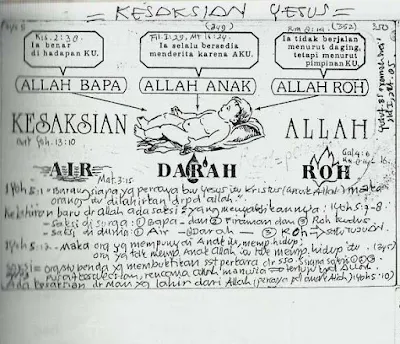 = KESAKSIAN YESUS =
(249) (352) 350
Kis. 2:38. Fil. 1:29, Mt 16:24.
Ia benar
di hadapan KU.
Ia selalu bersedia
menderita karena AKU.
Ia tidak berjalan
menurut daging,
tetapi menurut
pimpinan KU.
ALLAH BAPA
ALLAH ANAK
ALLAH ROH
KESAKSIAN ALLAH
Yoh. 13:10
AIR DARAH ROH
Mat. 3:15 Gal 4:6
1 Yoh 5:1 = "Barang siapa yg percaya bw Yesus itu Kristus (anak Allah) maka
orang itu dilahirkan drpd allah."
Kelahiran baru dr allah ada saksi yang menyaksikannya. 1 Yoh 5:7-8.
- saksi di surga: ① Bapa - dan ② Firman dan ③ Roh kudus
- saksi di dunia: ① Air - ② Darah - ③ Roh ⇒ satu tujuan.
1 Yoh 5:12 - Maka org yg mempunyai Anak itu, memp. hidup;
org yg tdk memp. Anak Allah itu tdk memp. hidup
saksi = orang / benda yg membuktikan sst perkara
rencana allah
Ada kesaksian dr Man yg lahir dari Allah (percaya pd anak Allah) 1 Yoh 5:10)